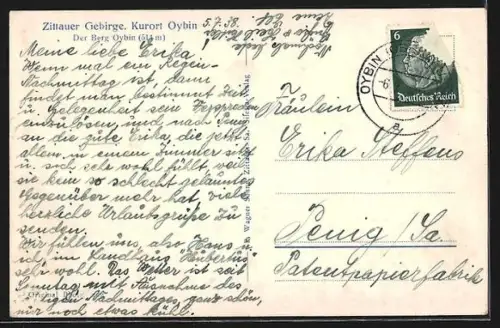 Zittauer Gebirge. Kurort Oybin
Der Berg Oybin (514 m)
5.7.38.
Meine liebe Erika!
Wenn mal ein Regen-
Nachmittag ist, dann
findet man bestimmt Zeit
u. Gelegenheit sein Versprechen
einzulösen, und nach Penig
an die gute Erika, die jetzt
allein in einem Zimmer sitzt
u. sich sehr wohl fühlt weil
sie kein so schlecht gelauntes
Gegenüber mehr hat, viele
herzliche Urlaubsgrüße zu
senden.
Wir fühlen uns, also Hans u.
ich, im Landhaus "Hubertus"
sehr wohl. Das Wetter ist seit
Sonntag mit Ausnahme des
Nachmittages, ganz schön,
nur noch etwas kühl.
Nochmals viele
Grüße u. Heil Hitler!
Deine
6
Deutsches Reich
OYBIN
a
Fräulein
Erika Steffens
Penig/Sa.
Patentpapierfabrik
Wagner Zittau